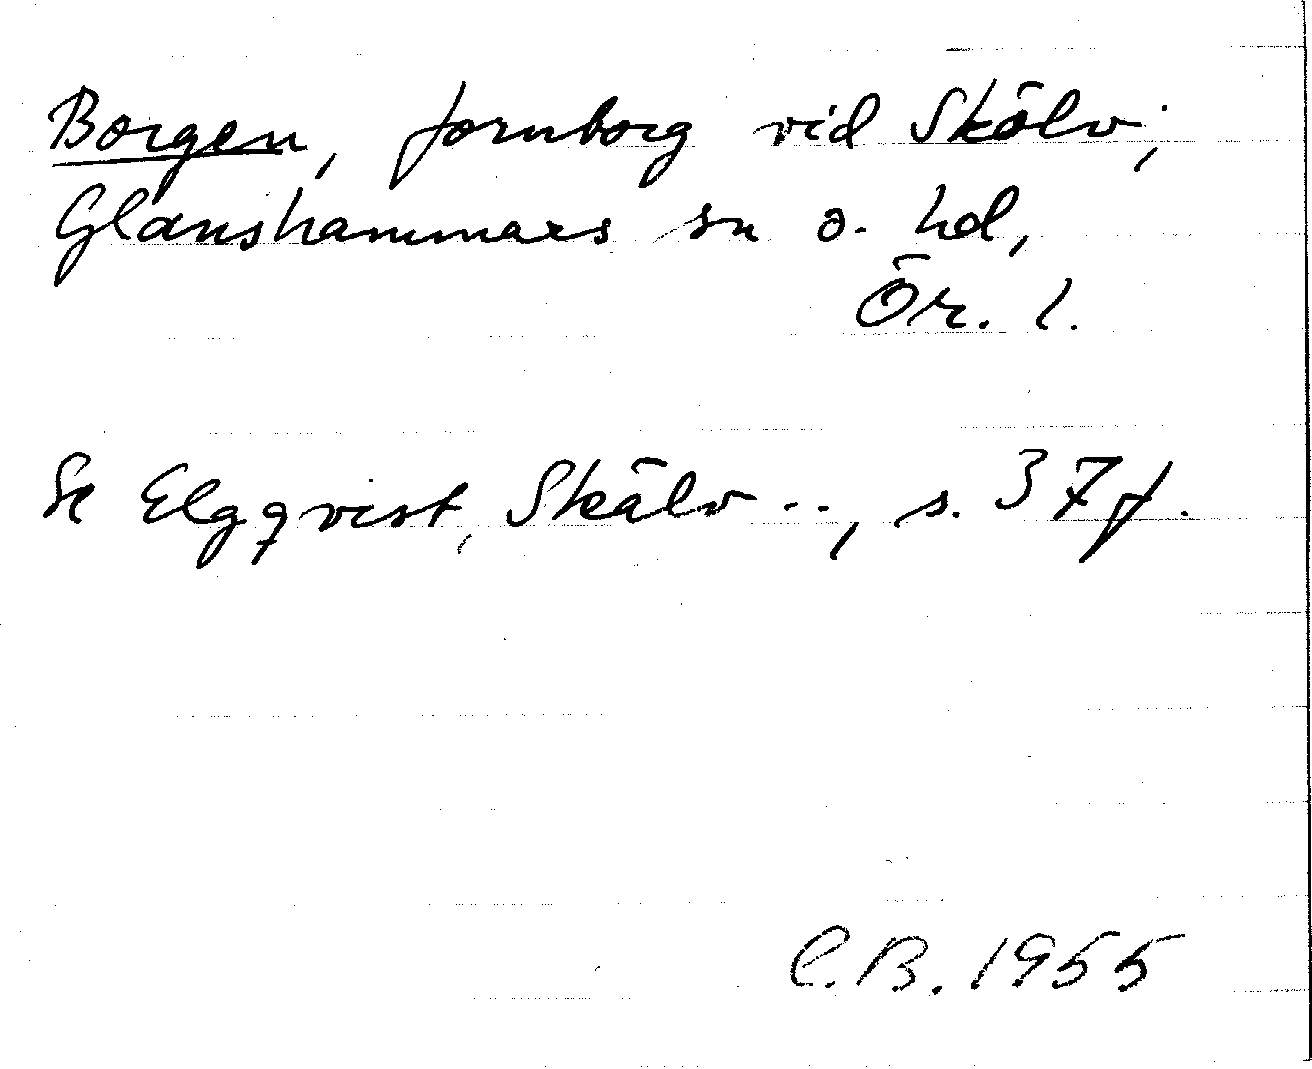 Borgen, fornborg vid Skälv;
Glanshammars sn o. hd,
Ör. l.
Se Elgqvist, Skälv .., s. 37 f.
C.B. 1955